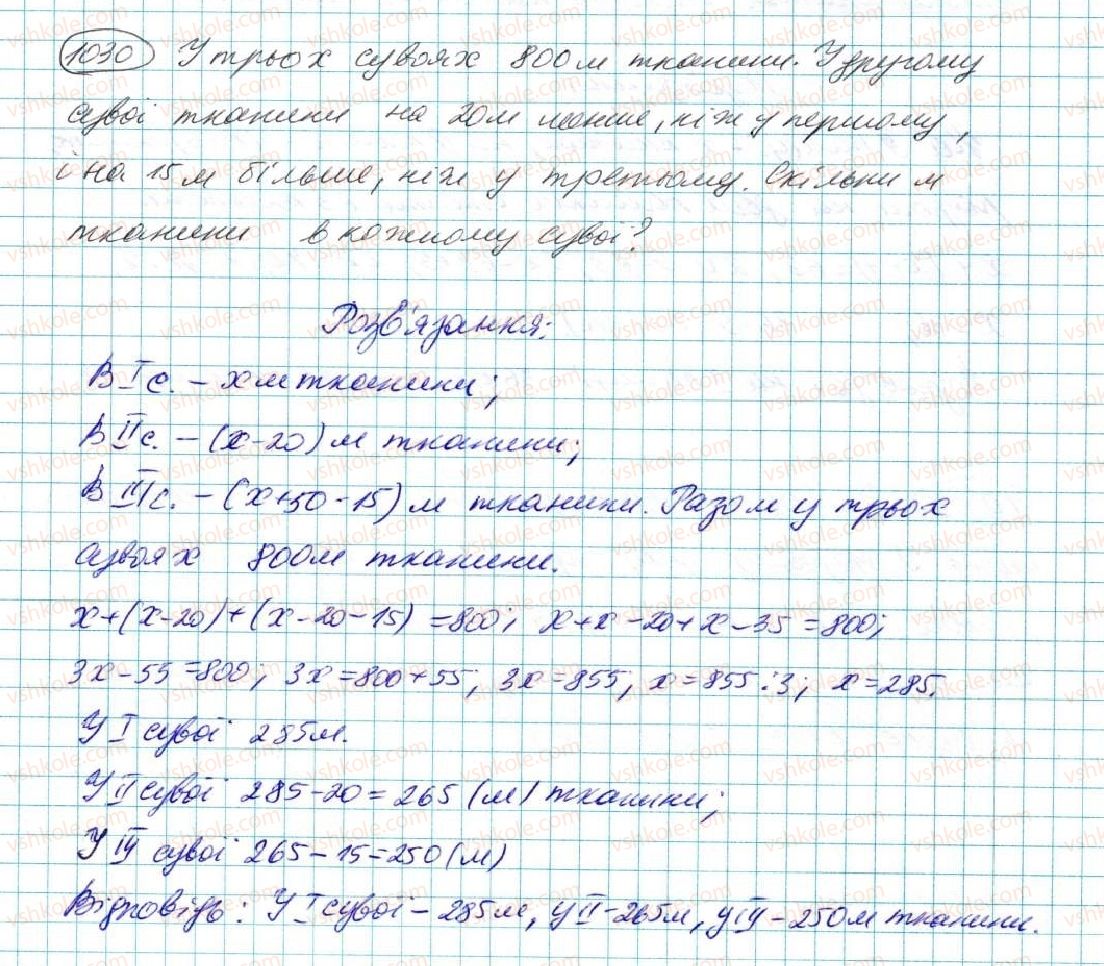 1030 У трьох сувоях 800 м тканини. У другому
сувої тканини на 20 м менше, ніж у першому,
і на 15 м більше, ніж у третьому. Скільки м
тканини в кожному сувої?
Розв'язання:
В I с. – х м тканини;
В II с. – (х-20) м тканини;
В III с. – (х+50-15) м тканини. Разом у трьох
сувоях 800 м тканини.
х+(х-20)+(х-20-15) =800; х+х-20+х-35=800;
3х-55=800; 3х=800+55; 3х=855; х=855:3; х=285.
У I сувої 285 м.
У II сувої 285-20=265 (м) тканини;
У III сувої 265-15=250 (м)
Відповідь: У I сувої – 285 м, у II – 265 м, у III – 250 м тканини.